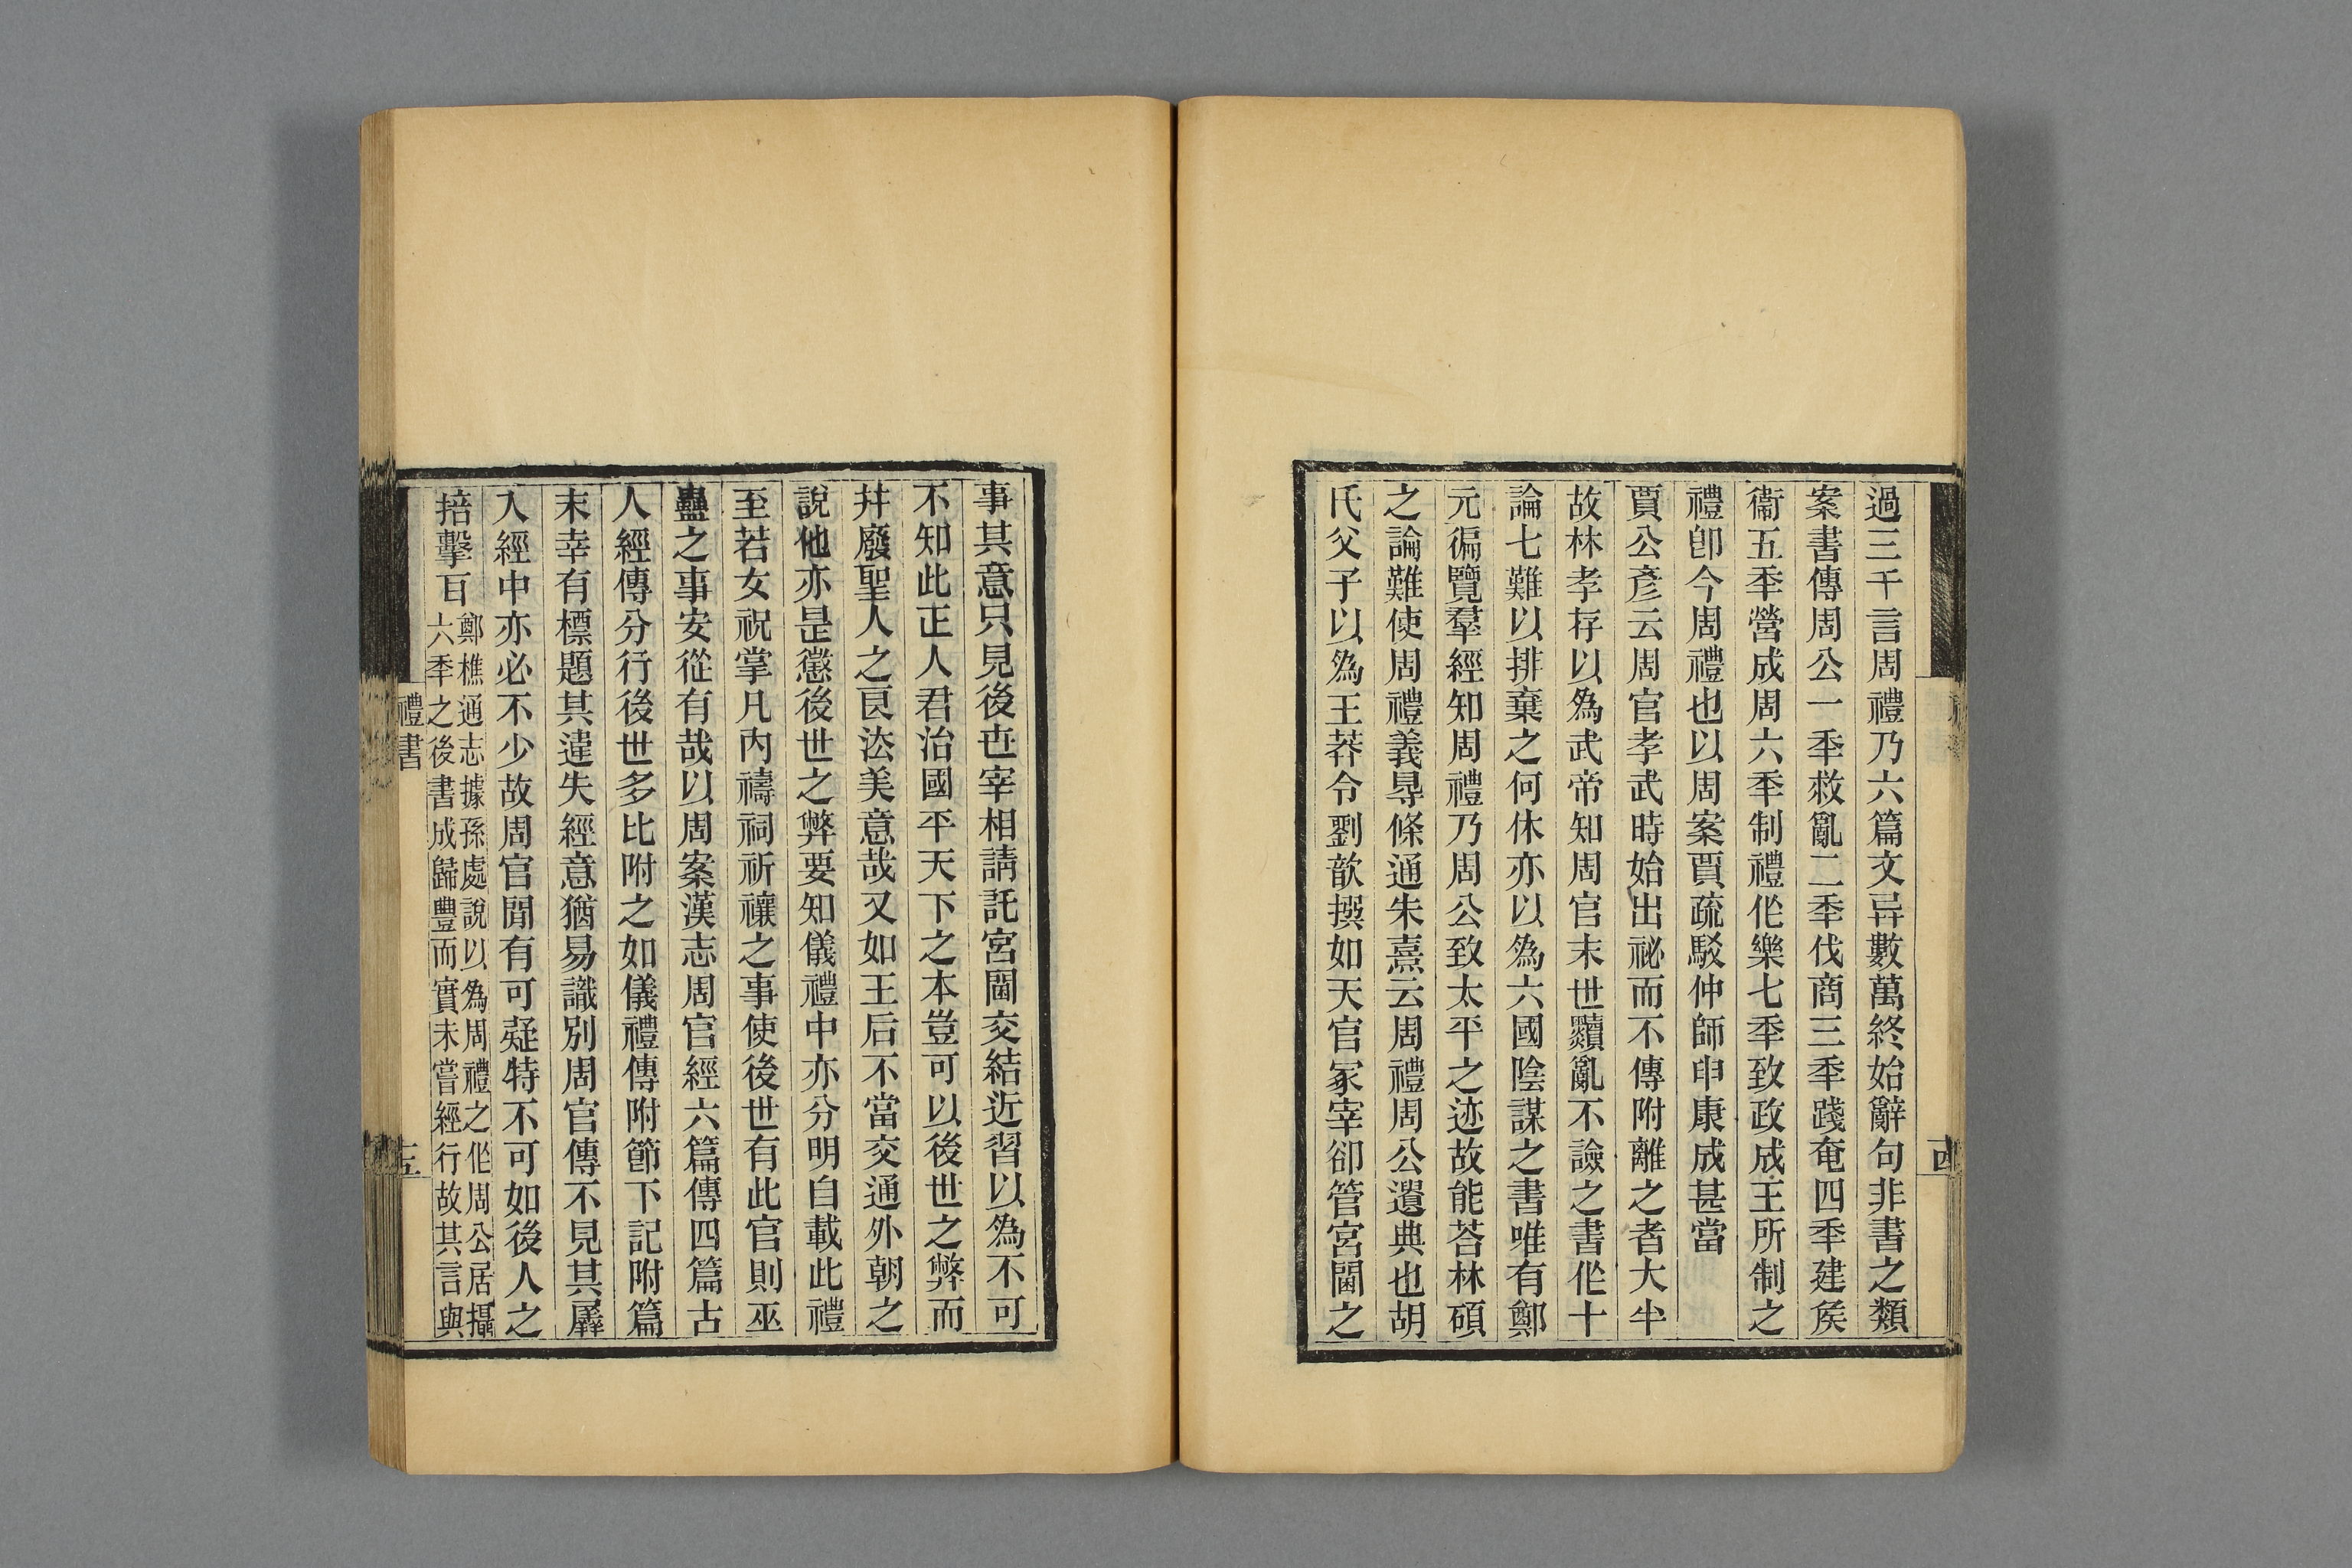 過三千言周禮乃六篇文异數萬終始辭句非書之類
案書傳周公一秊救亂二秊伐商三秊踐奄四秊建矦
衞五秊營成周六秊制禮作樂七秊致政成王所制之
禮卽今周禮也以周案賈疏駁仲師申康成甚當
賈公彥云周官孝武時始出祕而不傳附離之者大半
故林孝存以爲武帝知周官末世黷亂不諗之書作十
論七難以排棄之何休亦以爲六國陰謀之書唯有鄭
元徧覽羣經知周禮乃周公致太平之迹故能荅林碩
之論難使周禮義㝵條通朱熹云周禮周公遺典也胡
氏父子以爲王莽令劉歆撰如天官冢宰卻管宮閫之
十四
事其意只見後世宰相請託宮闈交結近習以爲不可
不知此正人君治國平天下之本豈可以後世之弊而
幷廢聖人之良法美意哉又如王后不當交通外朝之
說他亦是懲後世之弊要知儀禮中亦分明自載此禮
至若女祝掌凡內禱祠祈禳之事使後世有此官則巫
蠱之事安從有哉以周案漢志周官經六篇傳四篇古
人經傳分行後世多比附之如儀禮傳附節下記附篇
末幸有標題其違失經意猶易識別周官傳不見其屬
入經中亦必不少故周官閒有可疑特不可如後人之
掊擊百鄭樵通志據孫處說以爲周禮之作周公居攝
六秊之後書成歸豐而實未嘗經行故其言與
禮書
十五